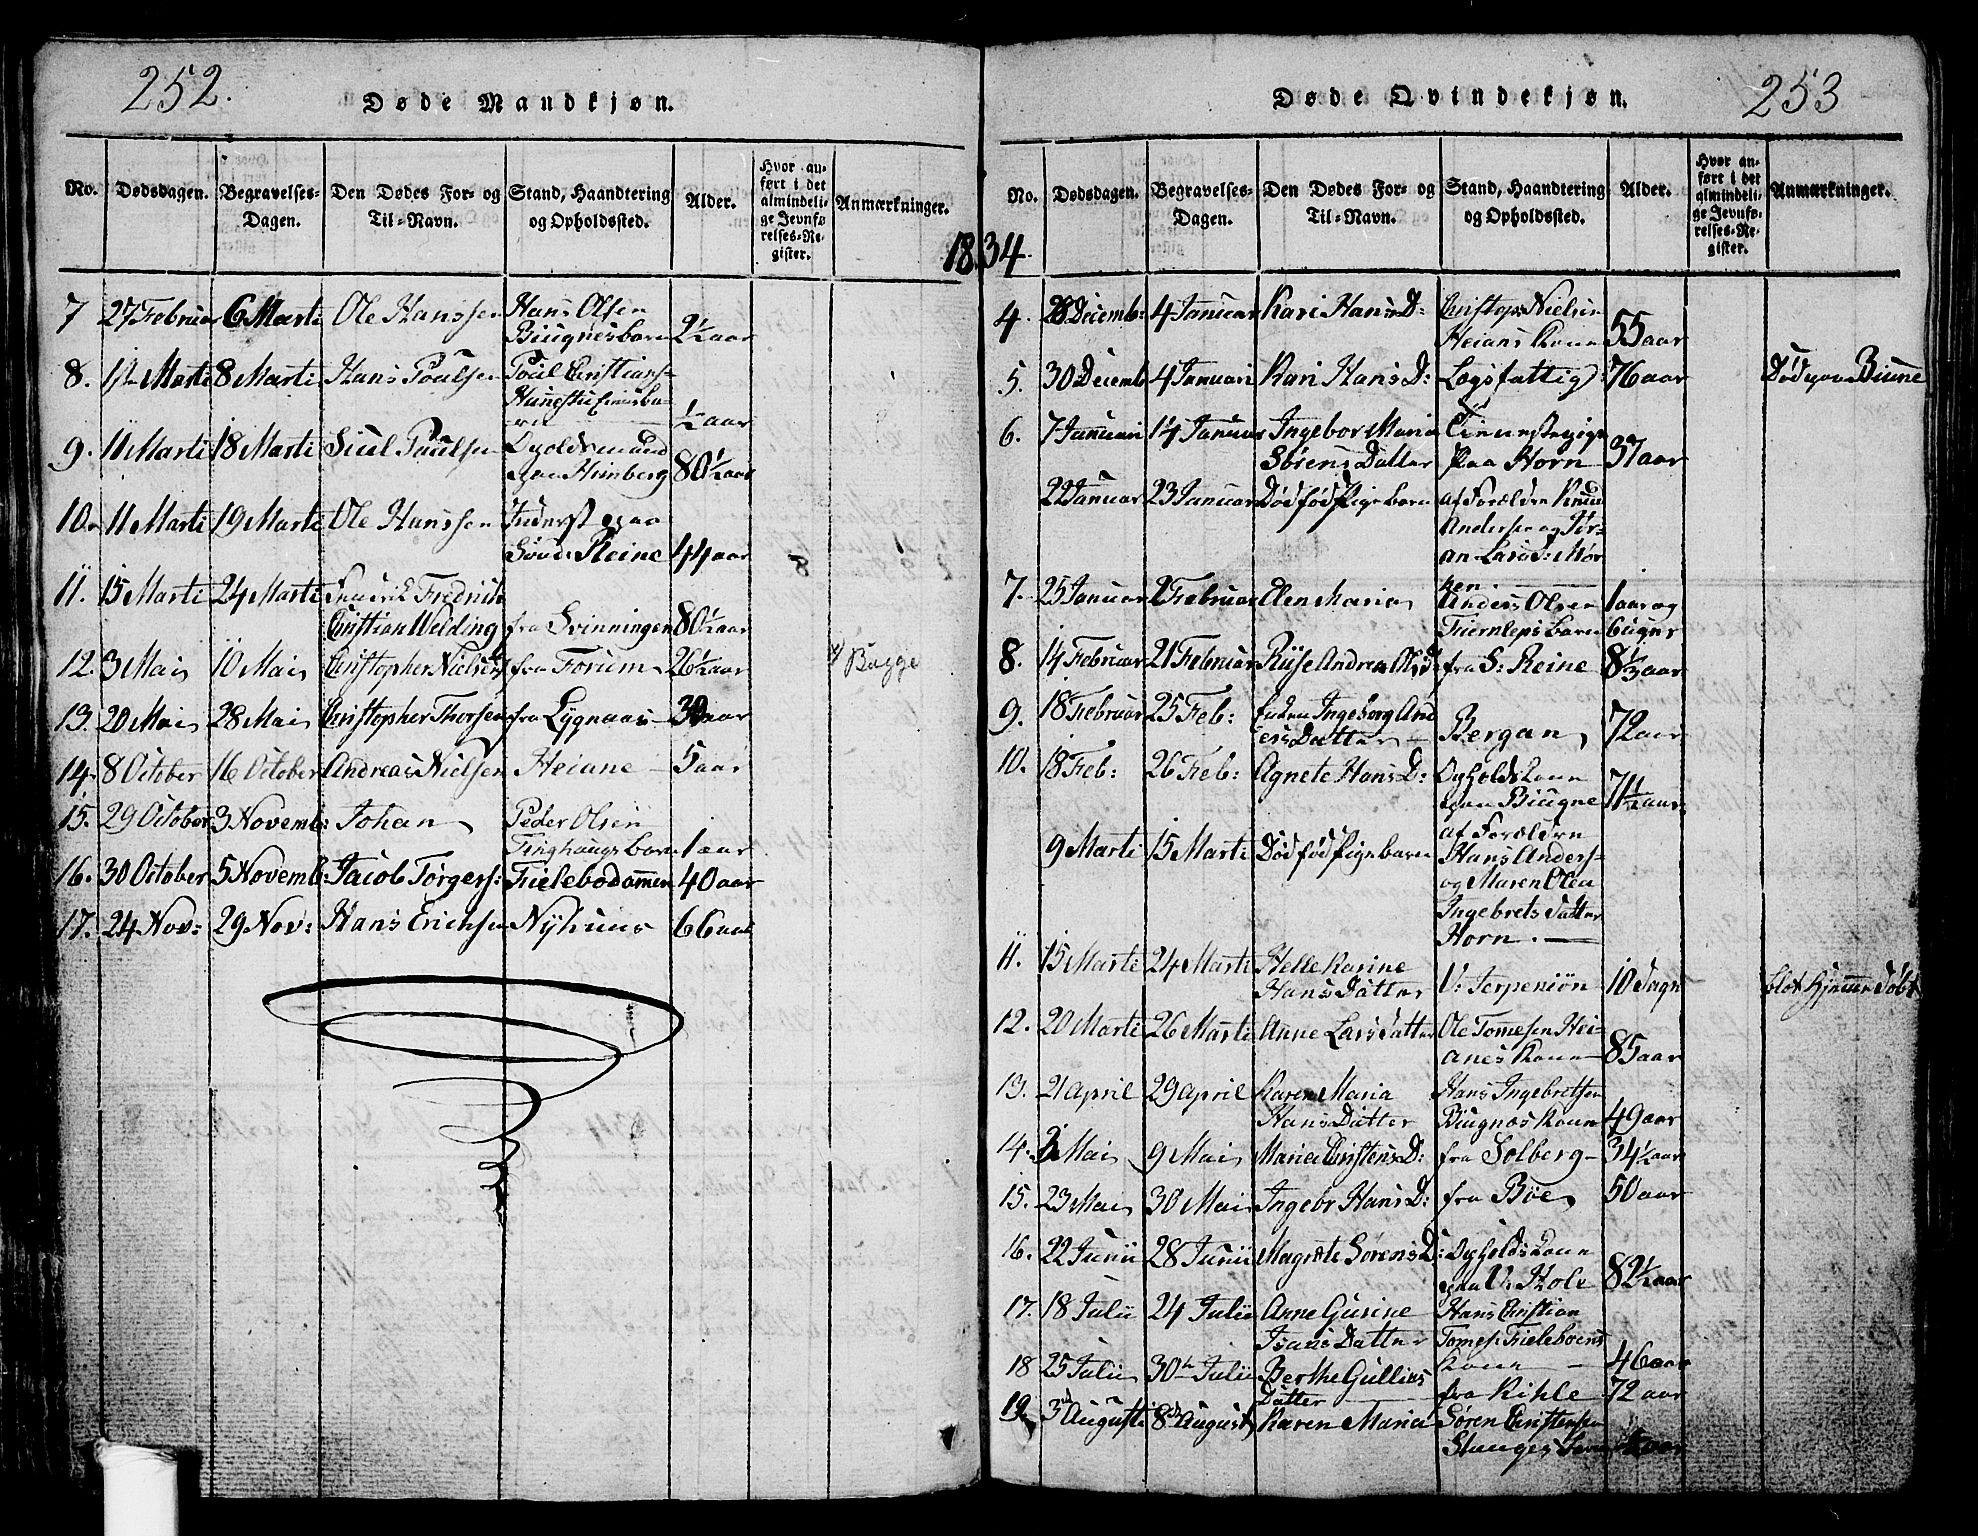 252.
Døde Mandkjøn.
No.
Dødsdagen.
Begravelses-
Dagen.
Den Dødes For- og
Til-Navn.
Stand, Haandtering
og Opholdssted.
Alder.
Hvor an-
ført i det
almindeli-
ge Jevnfø-
relses-Re-
gister.
Anmærkninger.
1834
7 27 Februar 6 Marti Ole Hanssen Hans Olsen
Biugnesbarn 2½ aar
8. Marti 8 Marti Hans Poulsen Poul Christians-
½ aar
9. 11 Marti 18 Marti Siul Poulsen Opholdsmand
paa Himberg 80½ aar
10. 11 Marti 19 Marti Ole Hanssen Inderst paa
Søndr Reine 44 aar
11. 15 Marti 24 Marti Fredrik
Christian Welding fra Svinningen 80½ aar
12. 3 Mai 10 Mai Christopher Nielsen fra Forum 26½ aar Bagge
13. 20 Mai 28 Mai Christopher Thorsen fra Lygnaas aar
14. 8 October 16 October Andreas Nielsen Heiane 5 aar
15. 29 October 3 Novemb: Johan Peder Olsen
Tinghaugs barn 1 aar
16. 30 October 5 Novemb: Jacob Torgers: Fielebodammen 40 aar
17. 24 Nov: 29 Nov: Hans Erichsen Nyhuus 66 aar
253
Døde Qvindekjøn.
No.
Dødsdagen.
Begravelses-
Dagen.
Den Dødes For- og
Til-Navn.
Stand, Haandtering
og Opholdssted.
Alder.
Hvor an-
ført i det
almindeli-
ge Jevnfø-
relses-Re-
gister.
Anmærkninger.
4. 28 Decemb: 4 Januar Kari Hans D: Christoph Nielsen
Heians Kone 55 aar
5. 30 Decemb 4 Januari Kari Hans D: Lægsfattig 76 aar Død paa Biune
6. 7 Januari 14 Januar Ingebor Maria Tienestepige
Sørens Datter Paa Horn 37 aar
22 Januar 23 Januar Dødfød Pigebarn af Forældre Knud
Andersen og Jør-
an Larsd: Mør
ken.
7. 25 Januar 2 Februar Elen Maria Anders Olsen 1 aar og
Tiernleps barn 6 uger
8. 14 Februar 21 Februar Andrea fra S: Reine 8⅓ aar
9. 18 Februar 25 Feb: Enken Ingeborg And
ers Datter Bergan 72 aar
10. 18 Feb: 26 Feb: Agnete Hans D: Opholds kone
paa Biugne 71½ aar
9 Marti 15 Marti Dødfød Pigebarn af Forældre
Hans Anders-
og Maren Olea
Ingebrets Datter
Horn.
11. 15 Marti 24 Marti Helle Karine
Hans Datter V: Terpeniøn 10 Dage blot hjemme Døbt
12. 20 Marti 26 Marti Anne Lars Datter Ole Tomesen Hei-
anes kone 85 aar
13. 21 April 29 April Karen Maria Hans Ingebretsen
Hans Datter Biugnæs kone 49 aar
14. 3 Mai 9 Mai Maria Christens D: fra Solberg 34½ aar
15. 23 Mai 30 Mai Ingebr Hans D: fra Bøe 50 aar
16. 22 Junii 28 Junii Magrete Sørens D: Opholds kone
paa V: Hole 82½ aar
17. 18 Julii 24 Julii Anne Gurine Hans Christian
Isacs Datter Tomes: Fieleboens
kone 46 aar
18 25 Julii 30te Julii Berthe Gullics
Datter fra Kihle 72 aar
19. 3d Augusti 8de August Karen Maria Søren Christensen
Stanges aar